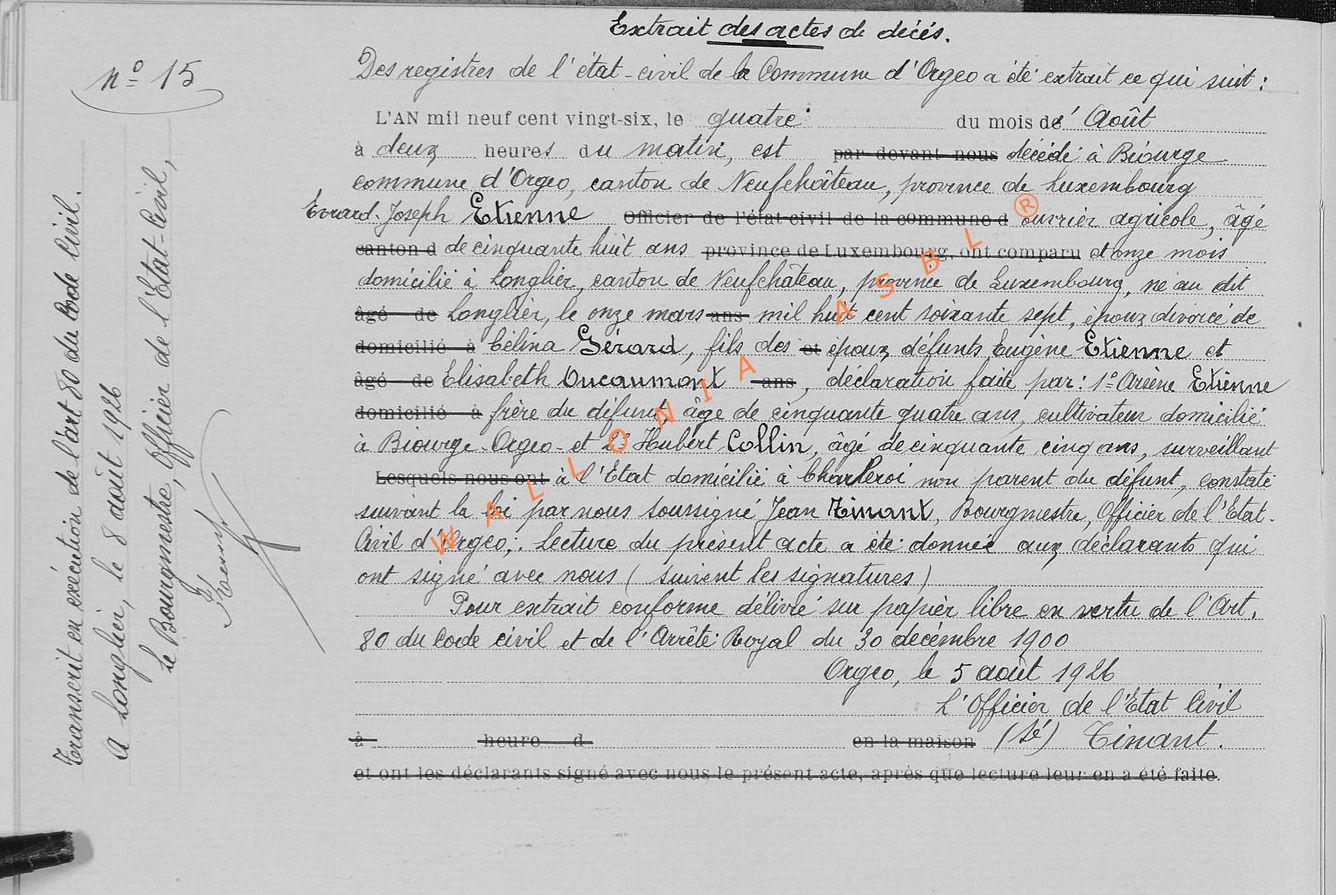 Extrait des actes de décés.
nº 15
Des registres de l'état-civil de la Commune d'Orgeo a été extrait ce qui suit :
L'AN mil neuf cent vingt-six, le quatre du mois de Août
à deux heures du matin, est par devant nous décédé à Biourge
commune d'Orgeo, canton de Neufchâteau, province de Luxembourg
Evrard-Joseph Etienne Officier de l'état civil de la commune d ouvrier agricole, âgé
canton d de cinquante huit ans province de Luxembourg, ont comparu et onze mois
domicilié à Longlier, canton de Neufchâteau, province de Luxembourg, né au dit
âgé de Longlier, le onze mars ans mil huit cent soixante sept, époux divorcé de
domicilié à Célina Gérard, fils des et époux défunts Eugène Etienne et
âgé de Elisabeth Ducaumont ans, déclaration faite par : 1º Arsène Etienne
domicilié à frère du défunt, âgé de cinquante quatre ans, cultivateur domicilié
à Biourge-Orgeo et 2º Hubert Collin, âgé de cinquante cinq ans, surveillant
Lesquels nous ont à l'Etat domicilié à Charleroi non parent du défunt, constaté
suivant la loi par nous soussigné Jean Tinant, Bourgmestre, Officier de l'Etat-
Civil d'Orgeo,. Lecture du présent acte a été donnée aux déclarants qui
ont signé avec nous ( suivent les signatures )
Pour extrait conforme délivré sur papier libre en vertu de l'Art.
80 du Code civil et de l'Arrêté Royal du 30 décembre 1900
Orgeo, le 5 août 1926
L'Officier de l'Etat Civil
à heure d en la maison (sé) Tinant.
et ont les déclarants signé avec nous le présent acte, après que lecture leur en a été faite.
Transcrit en exécution de l'art 80 du Code Civil.
A Longlier, le 8 août 1926
Le Bourgmestre, Officier de l'Etat-Civil,
WALLONIA ASBL ®